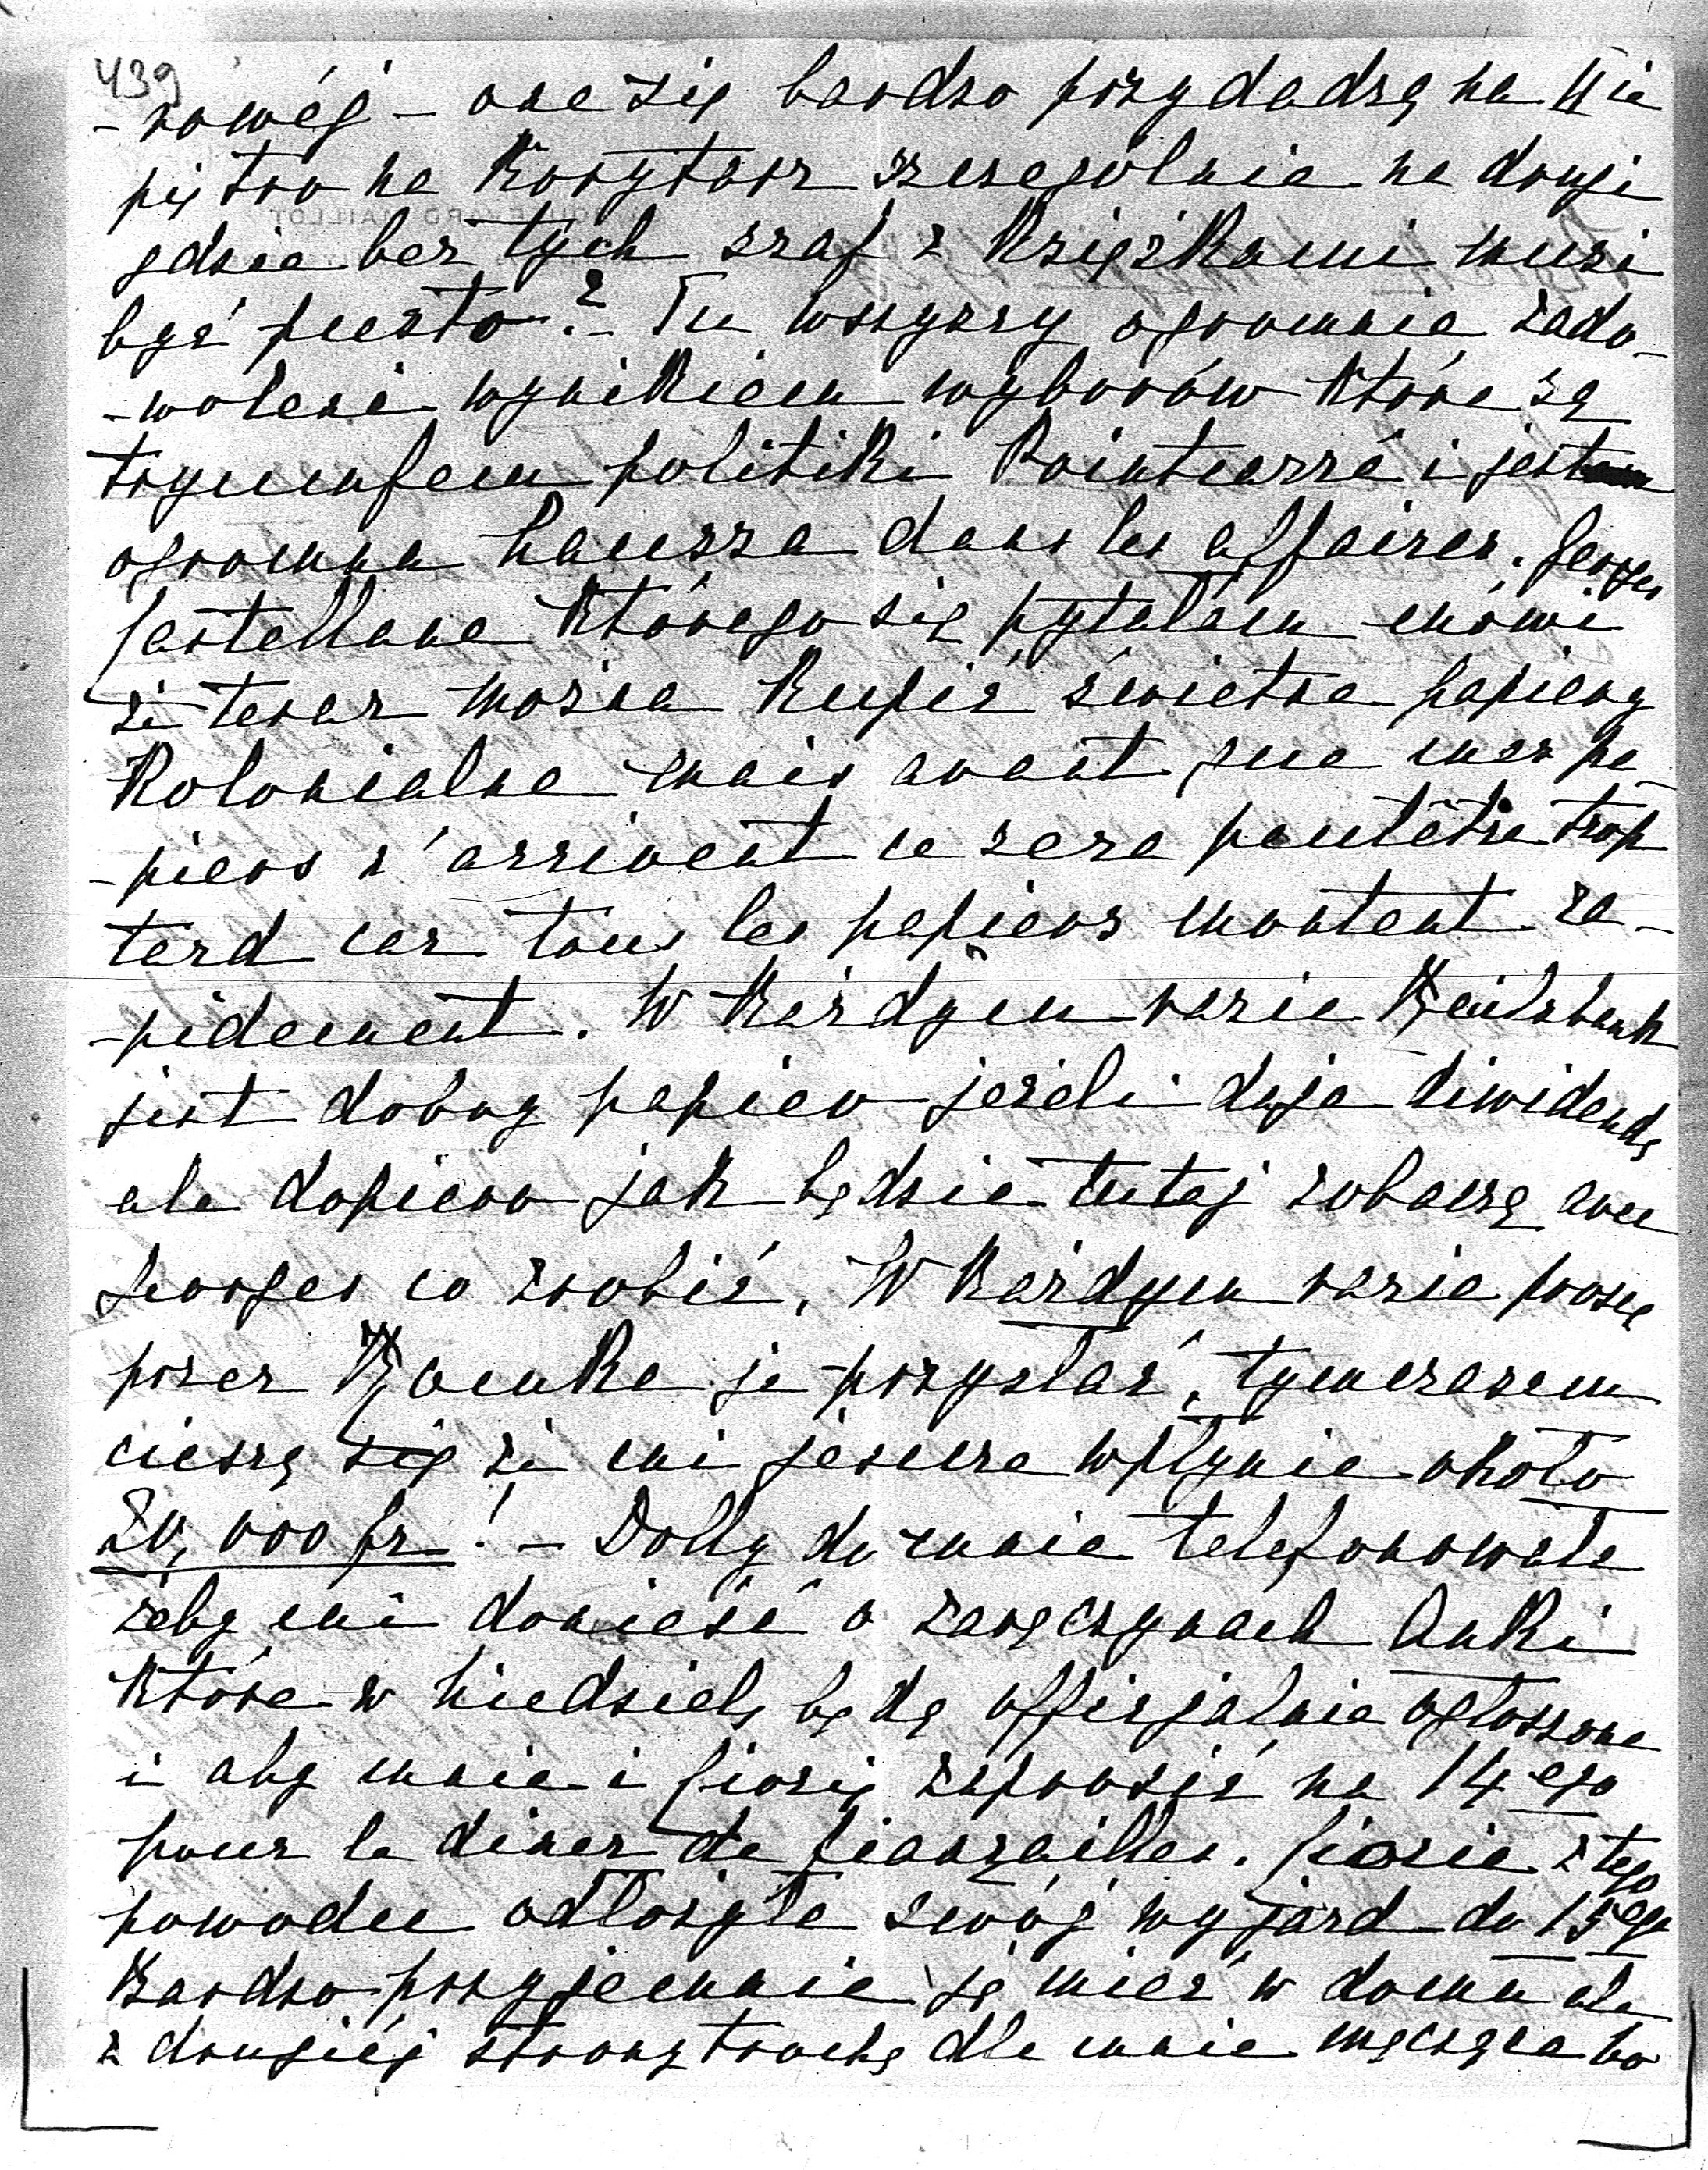 439
-rowéj - one się bardzo przydadzą na IIie
piętro na Korytarz szczególnie na drugi
gdzie bez tych szaf z Książkami musi
być pusto? - Tu wszyscy ogromnie zado-
-woleni wynikiem wyborów które są
tryumfem politiki Pointcarré i jest
ogromna haussa dans les affaires. Georges
Castellane którego się pytałam mówi
że teraz można Kupić świetne papiery
Kolonialne mais avant que mes pa-
-piers n'arrivent ce sera peutêtre trop
tard car tous les papiers montent ra-
-pidement. W Każdym razie
jest dobry papier jeżeli daje diwidendę
ale dopiero jak będzie tutaj zobaczę avec
Georges co zrobić. W Każdym razie proszę
przez je przysłać, tymczasem
cieszę się że mi jeszcze wpłynie około
20,000 fr! - Dolly do mnie telefonowała
żeby mi donieść o zaręczynach Anki
które w niedzielę będą officjalnie ogłoszone
i aby mnie i zaprosić na 14ego
pour le diner de fiançailles. z tego
powodu odłożyła swój wyjazd do 15ego
Bardzo przyjemnie ją mieć w domu ale
z drugiéj strony trochę dla mnie męczące bo